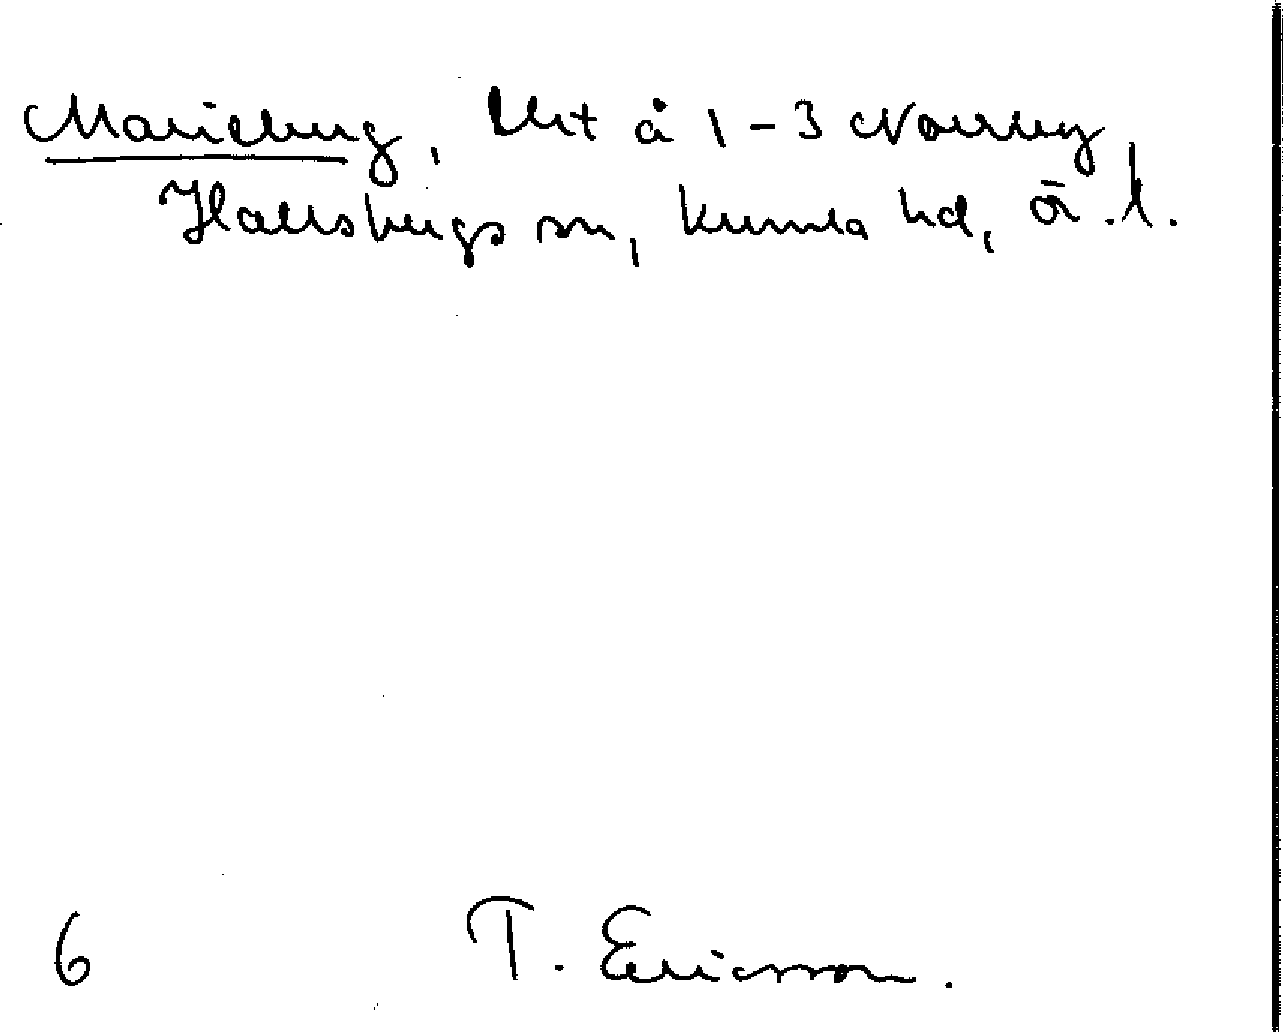 Marieberg, Lht å 1-3 Norrby
Hallsbergs sn, Kumla hd, ör.l.
6 T. Ericsson.